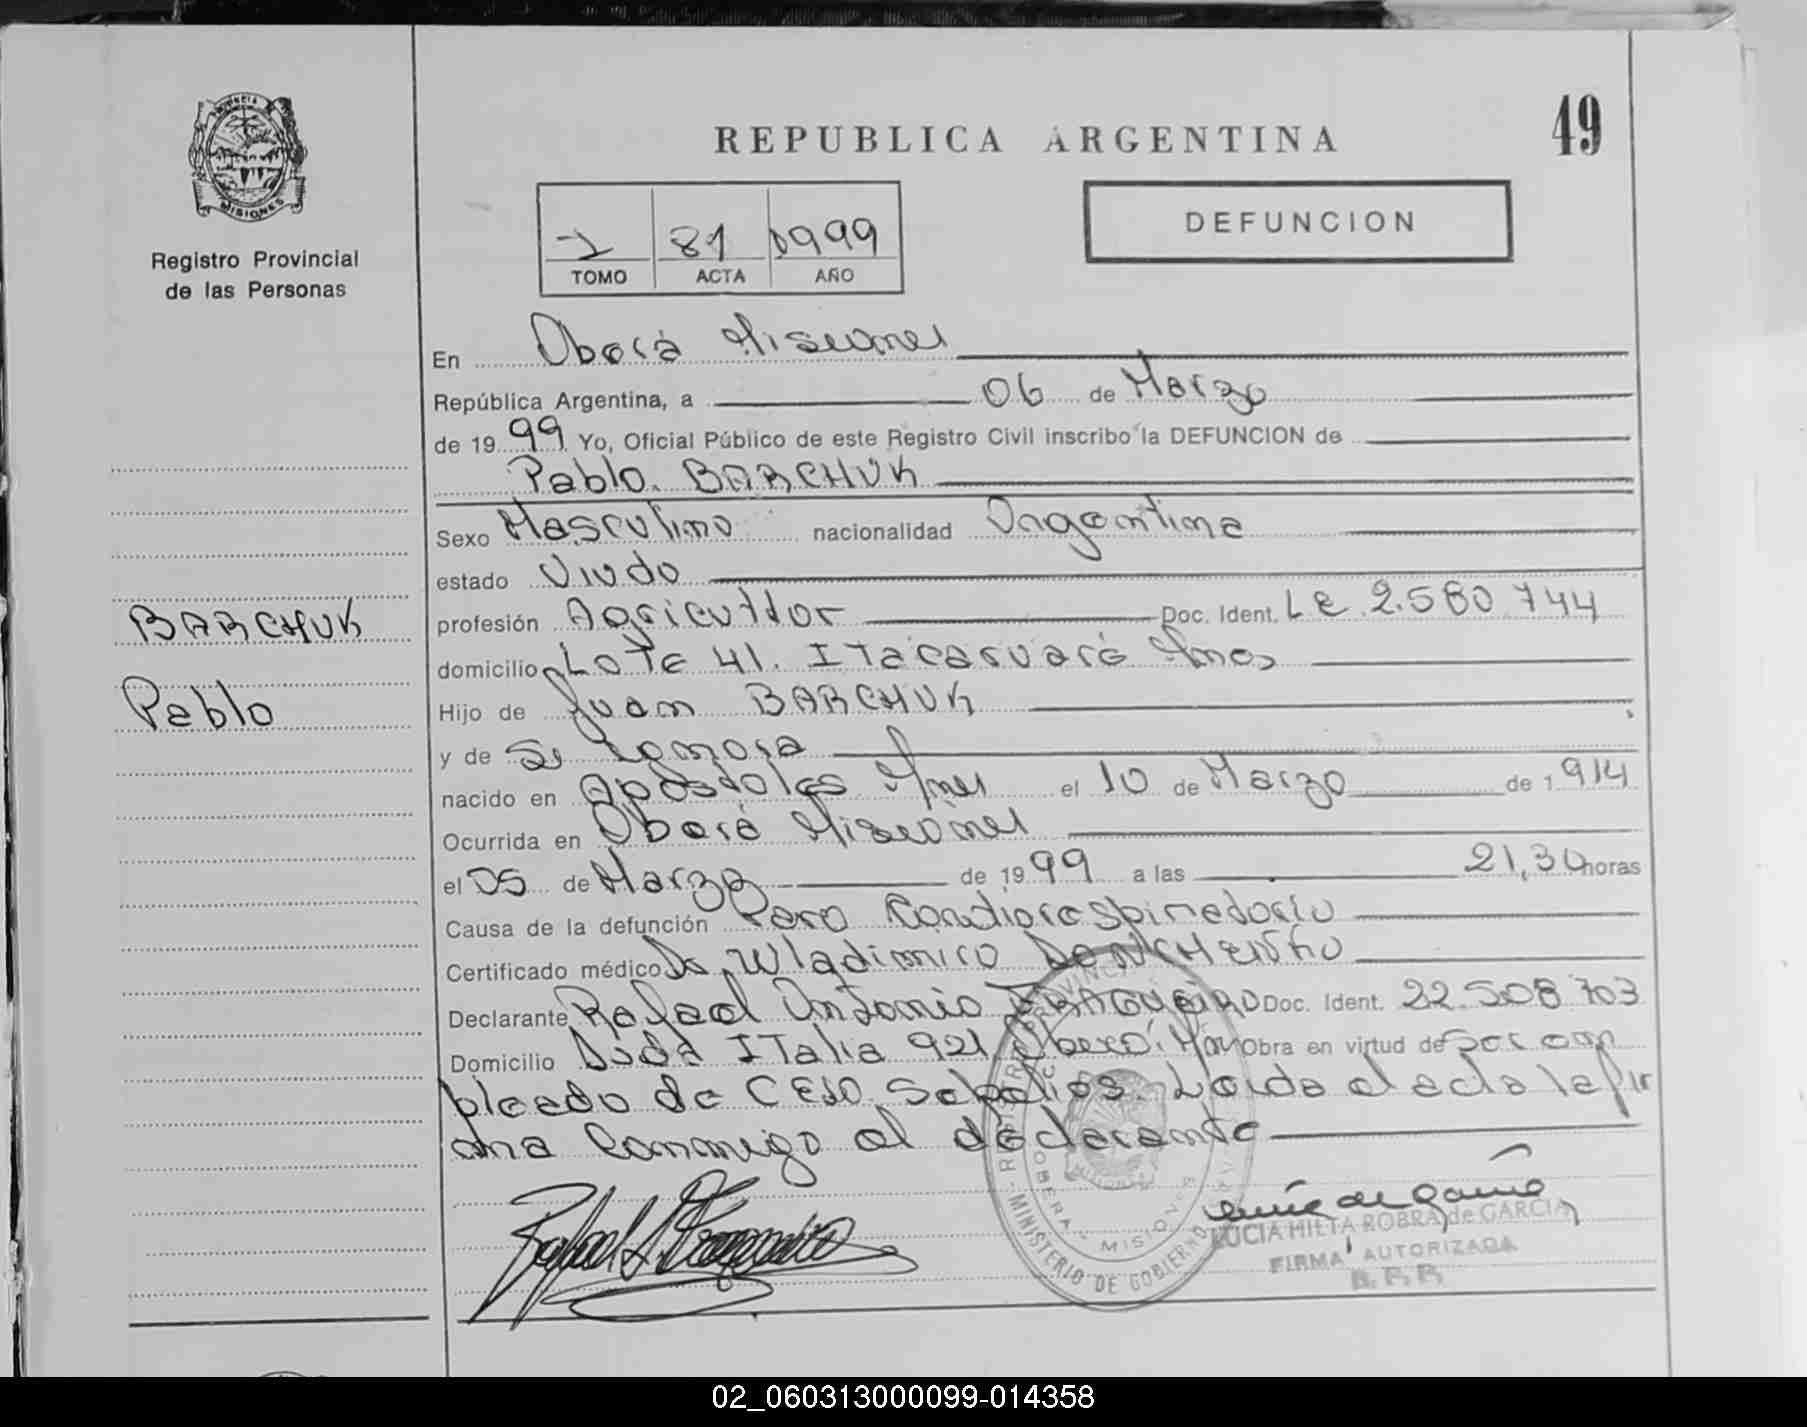 REPUBLICA ARGENTINA
49
MISIONES
Registro Provincial
de las Personas
1 81 1999
TOMO ACTA AÑO
DEFUNCION
En Oberá Misiones
República Argentina, a 06 de Marzo
de 1999 Yo, Oficial Público de este Registro Civil inscribo la DEFUNCION de
Pablo BARCHUK
Sexo Masculino nacionalidad Argentina
estado Viudo
profesión Agricultor Doc. Ident. LE 2.580.744
domicilio Lote 41. Itacaruaré Mnes
Hijo de Juan BARCHUK
y de se ignora
nacido en Apóstoles Mnes el 10 de Marzo de 1914
Ocurrida en Oberá Misiones
el 05 de Marzo de 1999 a las 21,30 horas
Causa de la defunción Paro Cardiorespiratorio
Certificado médico Dr. Wladimiro
Declarante Rafael Antonio Doc. Ident. 22.508.703
Domicilio Italia 921 Oberá Mnes Obra en virtud de ser em
pleado de Sepelios. Leída el acta la fir
ma conmigo el declarante
BARCHUK
Pablo
MINISTERIO DE GOBIERNO
OBERA - MISIONES
LUCIA HILTA ROBRA de GARCIA
FIRMA AUTORIZADA
02_060313000099-014358